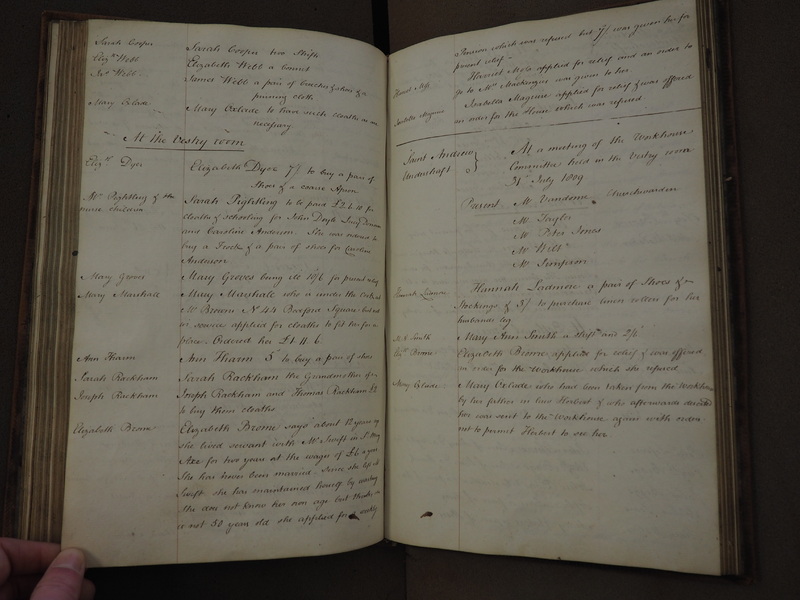 Sarah Cooper
Sarah Cooper two Shifts
Eliz.th Webb
Elizabeth Webb a bonnet
Jas Webb
James Webb a pair of breeches & shoes &
cloth
Mary Oxlade
Mary Oxlade to have such cloaths as are
necessary
At the Vestry room
Eliz.th Dyer
Elizabeth Dyer 7/ to buy a pair of
Shoes & a coarse Apron
nurse children
Sarah Pightling to be paid £2.6.10 for
cloaths & schooling for John Doyle
and Caroline Anderson. She was ordered to
buy a Frock & a pair of shoes for Caroline
Anderson
Mary Groves
Mary Groves being ill 10/6 for present relief
Mary Marshall
Mary Marshall who is under the care of
Mr Brown No 44 Square but not
in service applied for cloaths to fit her for a
place. Ordered her £1.11.6
Ann Tharm
Ann Tharm 5/ to buy a pair of shoes
Sarah Rackham
Sarah Rackham the Grandmother of
Joseph Rackham
Joseph Rackham and Thomas Rackham £2
to buy them cloaths
Elizabeth Brome
Elizabeth Brome says about 12 years ago
she lived servant with Mr Swift in St Mary
Axe for two years at the wages of £6 a year
She has never been married. Since she left Mr
Swift she has maintained herself by
She does not know her own age but thinks she
is not 50 years old she applied for a weekly
Pension which was refused but 7/ was given her for
present relief
Harriet Moss
Harriet Moss applied for relief and an order to
go to Mr Mackenzie was given to her
Isabella Magnus
Isabella Magnus applied for relief & was offered
an order for the House which was refused
Saint Andrew
Undershaft
At a meeting of the Workhouse
Committee held in the Vestry room
31st July 1809
Present Mr Vandome Churchwarden
Mr Taylor
Mr Peter Jones
Mr Webb
Mr Simpson
Hannah Ladmore
Hannah Ladmore a pair of Shoes &
Stockings & 3/ to purchase linen rollers for her
husbands leg
M A Smith
Mary Ann Smith a shift and 2/6
Eliz.th Brome
Elizabeth Brome applied for relief & was offered
an order for the Workhouse which she refused
Mary Oxlade
Mary Oxlade who had been taken from the Workhouse
by her father in law Herbert & who afterwards deserted
her was sent to the Workhouse again with orders
not to permit Herbert to see her